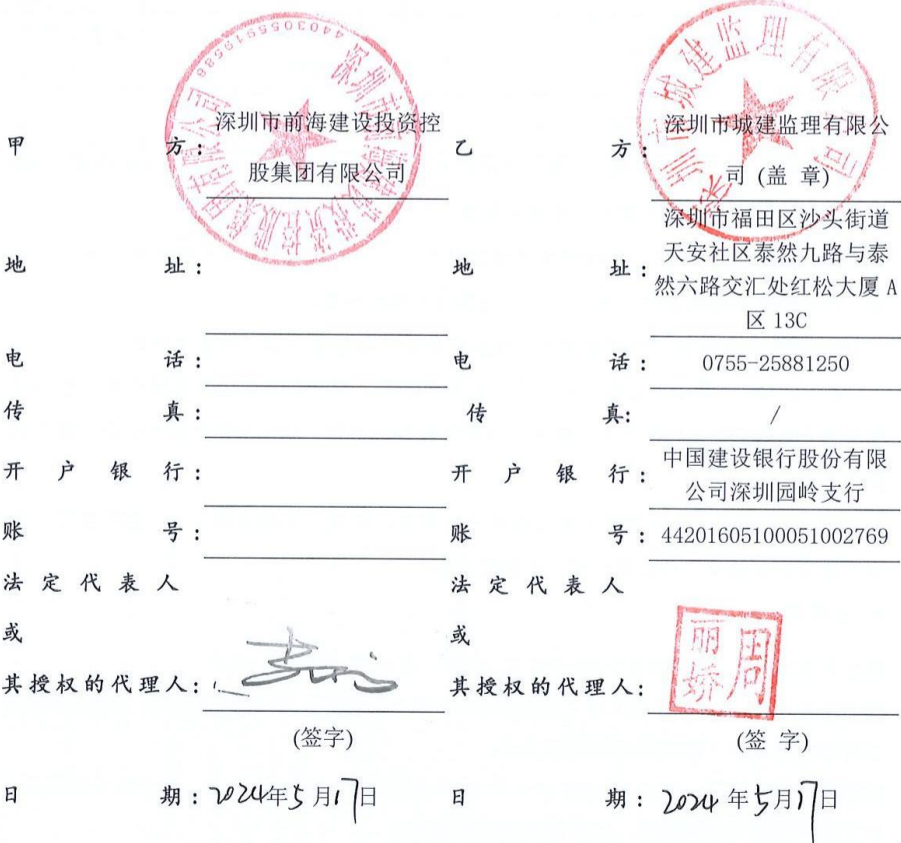 甲 方：
深圳市前海建设投资控
股集团有限公司
地 址：
电 话：
传 真：
开 户 银 行：
账 号：
法 定 代 表 人
或
其授权的代理人：
(签字)
日 期：2024年5月17日
乙 方：
深圳市城建监理有限公
司 (盖 章)
地 址：
深圳市福田区沙头街道
天安社区泰然九路与泰
然六路交汇处红松大厦 A
区 13C
电 话：
0755-25881250
传 真:
/
开 户 银 行：
中国建设银行股份有限
公司深圳园岭支行
账 号：
44201605100051002769
法 定 代 表 人
或
其授权的代理人：
周丽娇
(签 字)
日 期：2024年5月17日
深圳市城建监理有限公司